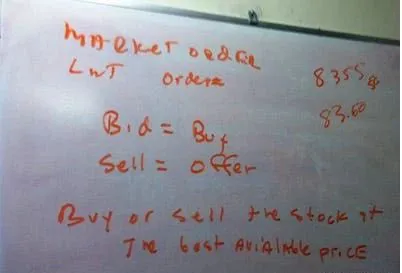 MARKET ORDER
LMT ORDERS
83.55
83.60
Bid = Buy
Sell = offer
Buy or sell the stock at
The best AVIAlable price